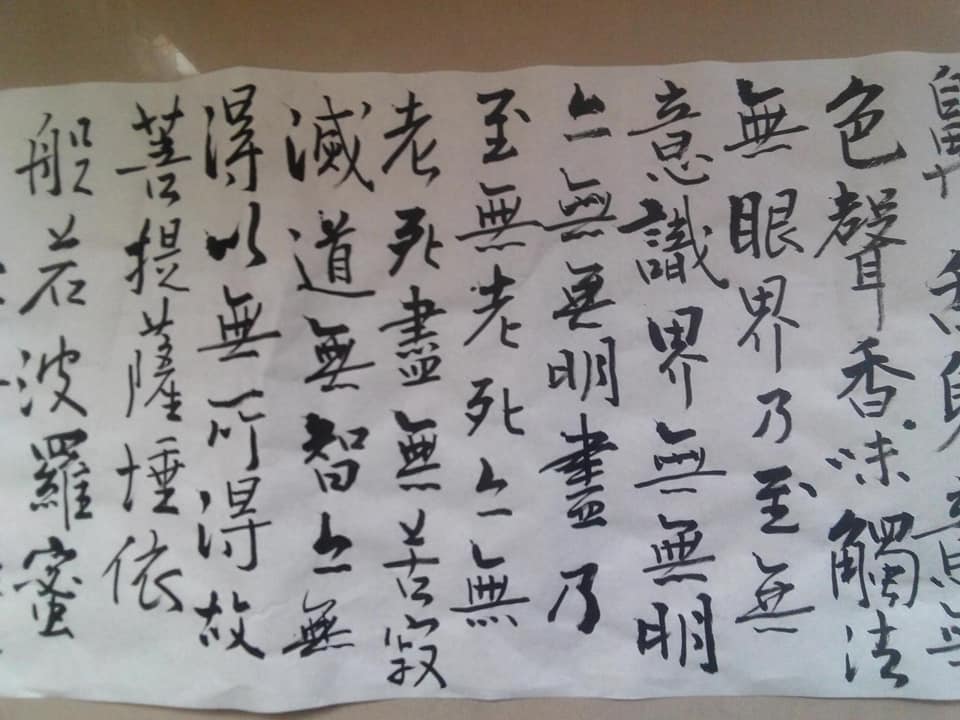 鼻舌身意無
色聲香味觸法
無眼界乃至無
意識界無無明
亦無無明盡乃
至無老死亦無
老死盡無苦寂
滅道無智亦無
得以無所得故
菩提薩埵依
般若波羅蜜